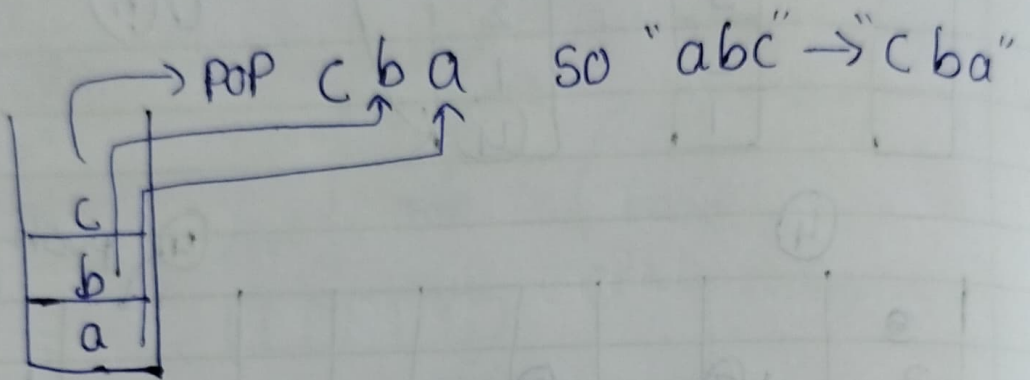 POP c b a so "abc" → "cba"
c
b
a